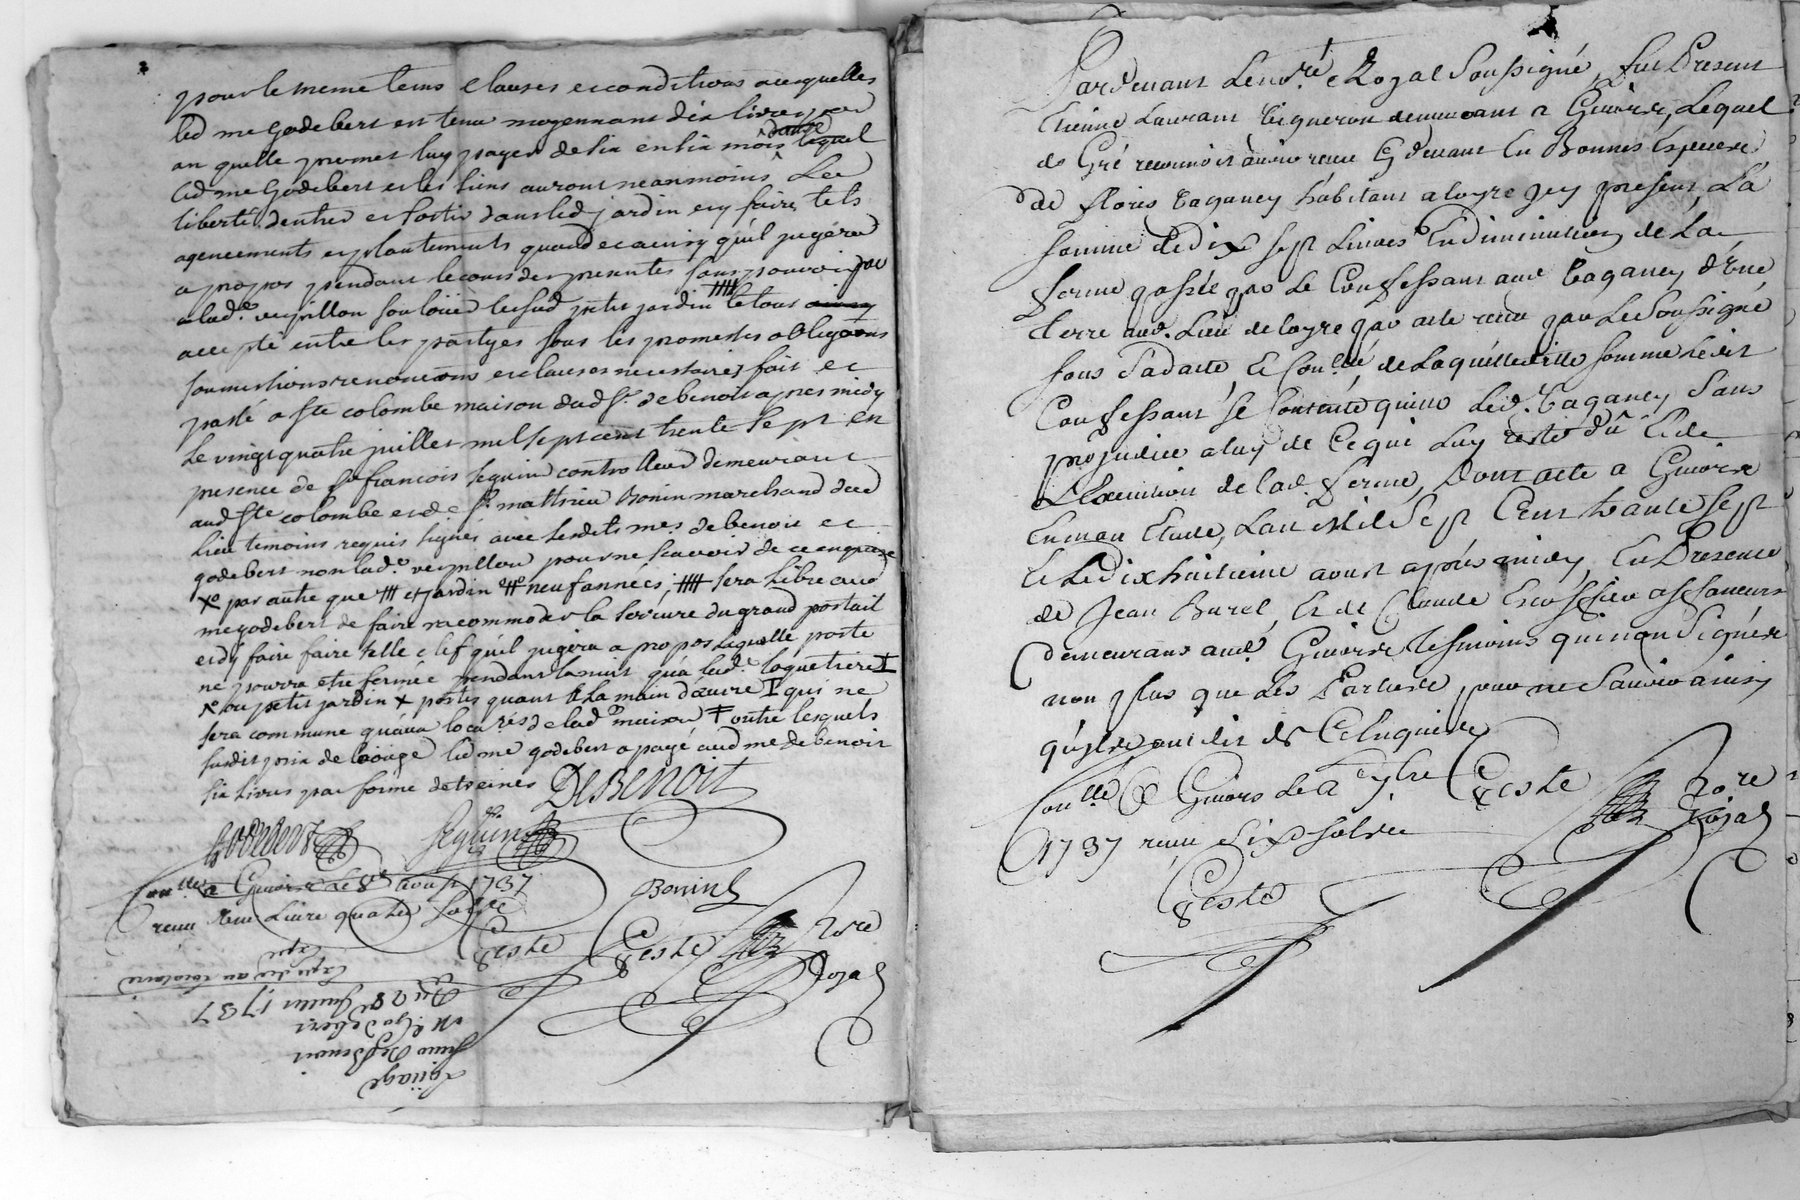 pour le meme tems clauses et conditions auxquelles
led me Godebert est tenu moyennant dix livres par
an quelle promet luy payer de six en six mois
led me Godebert et les siens auront neanmoins la
liberté dentrer et sortir dans led jardin et y faire tels
agencements et plantements quand et ainsy quil jugera
a propos pendant le cours des presentes sans pouvoir par
lad.e verpillon souloüer lesusd petit jardin #### le tout ainsy
accepté entre les partyes sous les promesses obligaons
soumissions renonciaons et clauses necessaires, fait et
passé a ste colombe maison dud sr. de benoit apres midy
le vingt quatre juillet mil sept cent trente sept en
presence de sr françois seguin controlleur demeurant
aud ste colombe et de sr mathieu Bonin marchand dud
lieu temoins requis signés avec lesdits mes de benoit et
godebert non lad.e verpillon pour ne scavoir de ce enquise
par autre que et jardin neuf années; #### sera libre aud
me godebert de faire racommoder la serrure du grand portail
et dy faire faire telle clef quil jugera a propos laquelle porte
ne pourra etre fermée pendant la nuit qua lad.e
ou petit jardin x portes quant a la main dœuvre qui ne
sera commune quaux locares de lad.e maison outre lesquels
susdit prix de led me godebert a payé aud me de benoit
six livres par forme detreines DEBENOIT
Godebert Seguin
Conlle a Givors le 8e aoust 1737 Bonin
receu une livre quatre sols
Ceste Ceste Nore
Royal
Expedié au
Du 28e Juillet 1737
M. godebert
Sieur De Benoit
Loüage
Pardevant le nore Royal soussigné, fut present
Etienne Laurant vigneron demeurant a Givors, Lequel
de Gré reconnoit avoir receu cy devant en Bonnes Especes
de floris Caganey habitant a loyre jcy present, La
somme de dix sept Livres En diminution de La
ferme passée par le Confessant aud Caganey d'Une
terre aud. Lieu de loyre par acte receu par Le Soussigné
sous sa datte, Et Conllé, de Laquelle ditte somme Ledit
Confessant se Contente quitte Led. Caganey, sans
prejudice a luy de Ce qui Luy reste dû Et de
L'Execution de lad. ferme, Dont acte a Givors
En mon Etude, Lan Mil Sept Cent trante sept
Et le dix huitieme aoust apres midy, En Presence
de Jean Burel, Et de Claude Escoffier
demeurans aud. Givors tesmoins qui n'ont Signés
non plus que Les Parties pour ne Sauoir ainsy
qu'ils ont dit de Ce Enquis
Conllé a Givors le 2e 7bre Ceste Nore
1737 receu Six sols Royal
Ceste